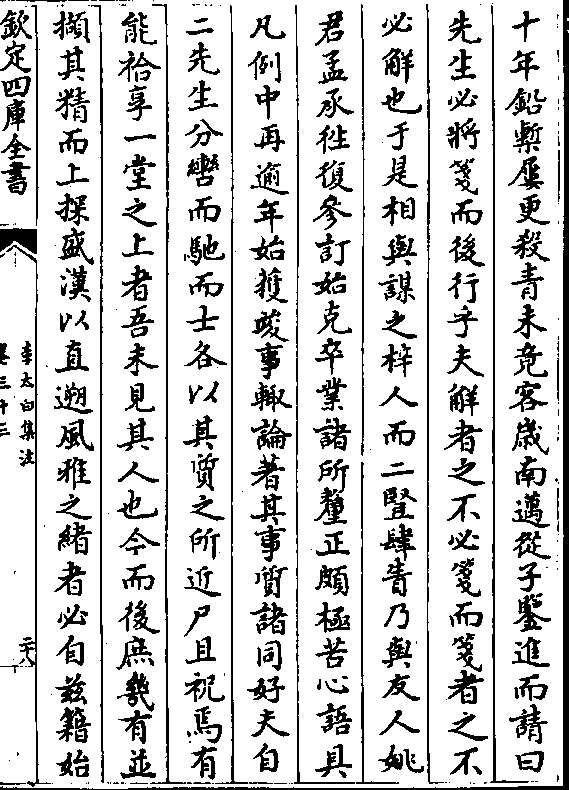 十年鉛槧屢更殺青未竟客歲南邁從子鑒進而請曰
先生必將箋而後行乎夫解者之不必箋而箋者之不
必解也于是相與謀之梓人而二豎肆眚乃與友人姚
君孟承徃復參訂始克卒業諸所釐正頗極苦心語具
凡例中再逾年始獲竣事輙論著其事質諸同好夫自
二先生分轡而馳而士各以其質之所近尸且祝焉有
能祫享一堂之上者吾未見其人也今而後庶幾有並
擷其精而上探盛漢以直遡風雅之緒者必自兹籍始
欽定四庫全書
李太白集注
卷三十三
二十八